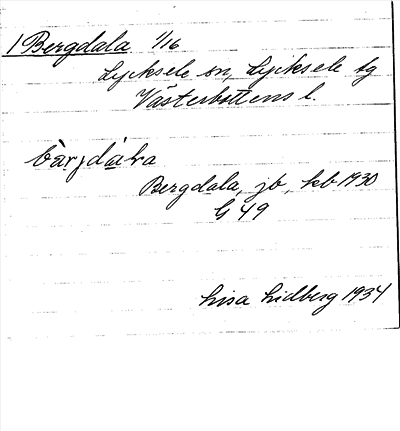 1 Bergdala 1/16
Lycksele sn, Lycksele tg
Västerbottens l.
Bergdala, jb, kb 1930
G 49
Lisa Lidberg 1934